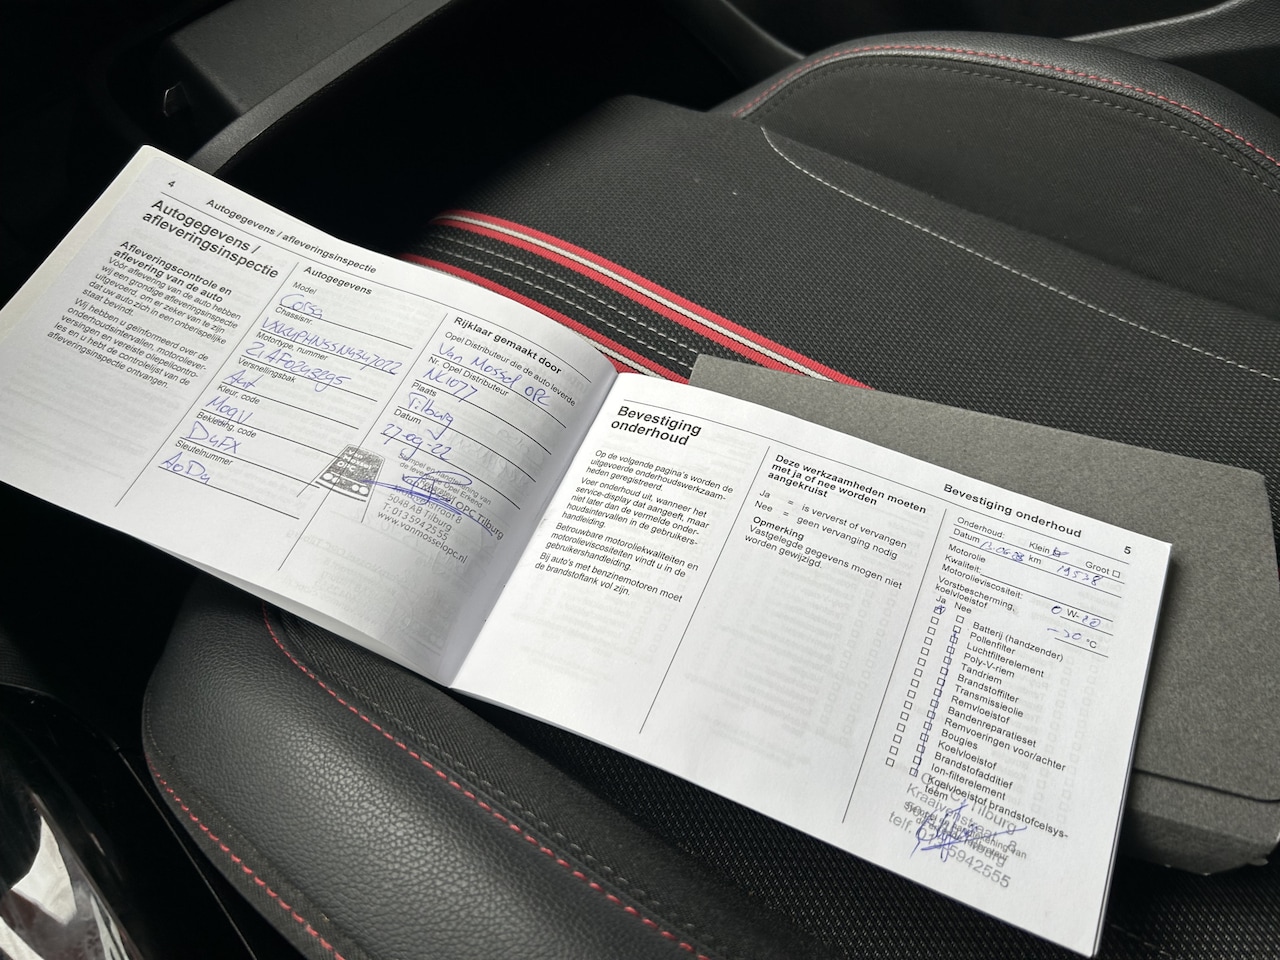 4
Autogegevens / afleveringsinspectie
Autogegevens /
afleveringsinspectie
Afleveringscontrole en
aflevering van de auto
Vóór aflevering van de auto hebben
wij een grondige afleveringsinspectie
uitgevoerd, om er zeker van te zijn
dat uw auto zich in een onberispelijke
staat bevindt.
Wij hebben u geïnformeerd over de
onderhoudsintervallen, motorolievervsingen en vereiste oliepeilcontroles en u hebt de controlelijst van de
afleveringsinspectie ontvangen.
Autogegevens
Model
Corsa
Chassisnr.
Motortype, nummer
Versnellingsbak
Aut
Kleur, code
Bekleding, code
D4FX
Sleutelnummer
Rijklaar gemaakt door
Opel Distributeur die de auto leverde
Van Mossel OPC
Nr. Opel Distributeur
NL1077
Plaats
Tilburg
Datum
27-09-22
OPC Tilburg
5048 AB Tilburg
T: 013 594 25 55
www.vanmosselopc.nl
Bevestiging
onderhoud
Op de volgende pagina's worden de
uitgevoerde onderhoudswerkzaam-
heden geregistreerd.
Voer onderhoud uit, wanneer het
service-display dat aangeeft, maar
niet later dan de vermelde onder-
houdsintervallen in de gebruikers-
handleiding.
Betrouwbare motoroliekwaliteiten en
motorolieviscositeiten vindt u in de
gebruikershandleiding.
Bij auto's met benzinemotoren moet
de brandstoftank vol zijn.
Deze werkzaamheden moeten
met ja of nee worden
aangekruist
Ja = is ververst of vervangen
Nee = geen vervanging nodig
Opmerking
Vastgelegde gegevens mogen niet
worden gewijzigd.
Bevestiging onderhoud
5
Onderhoud: Klein Groot
Datum km 19528
Motorolie
Kwaliteit:
Motorolieviscositeit: 0 W-20
Vorstbescherming,
koelvloeistof -30 °C
Ja Nee
Batterij (handzender)
Pollenfilter
Luchtfilterelement
Poly-V-riem
Tandriem
Brandstoffilter
Transmissieolie
Remvloeistof
Bandenreparatieset
Remvoeringen voor/achter
Bougies
Koelvloeistof
Brandstofadditief
Ion-filterelement
Koelvloeistof brandstofcelsys-
teem
telf. 0135942555